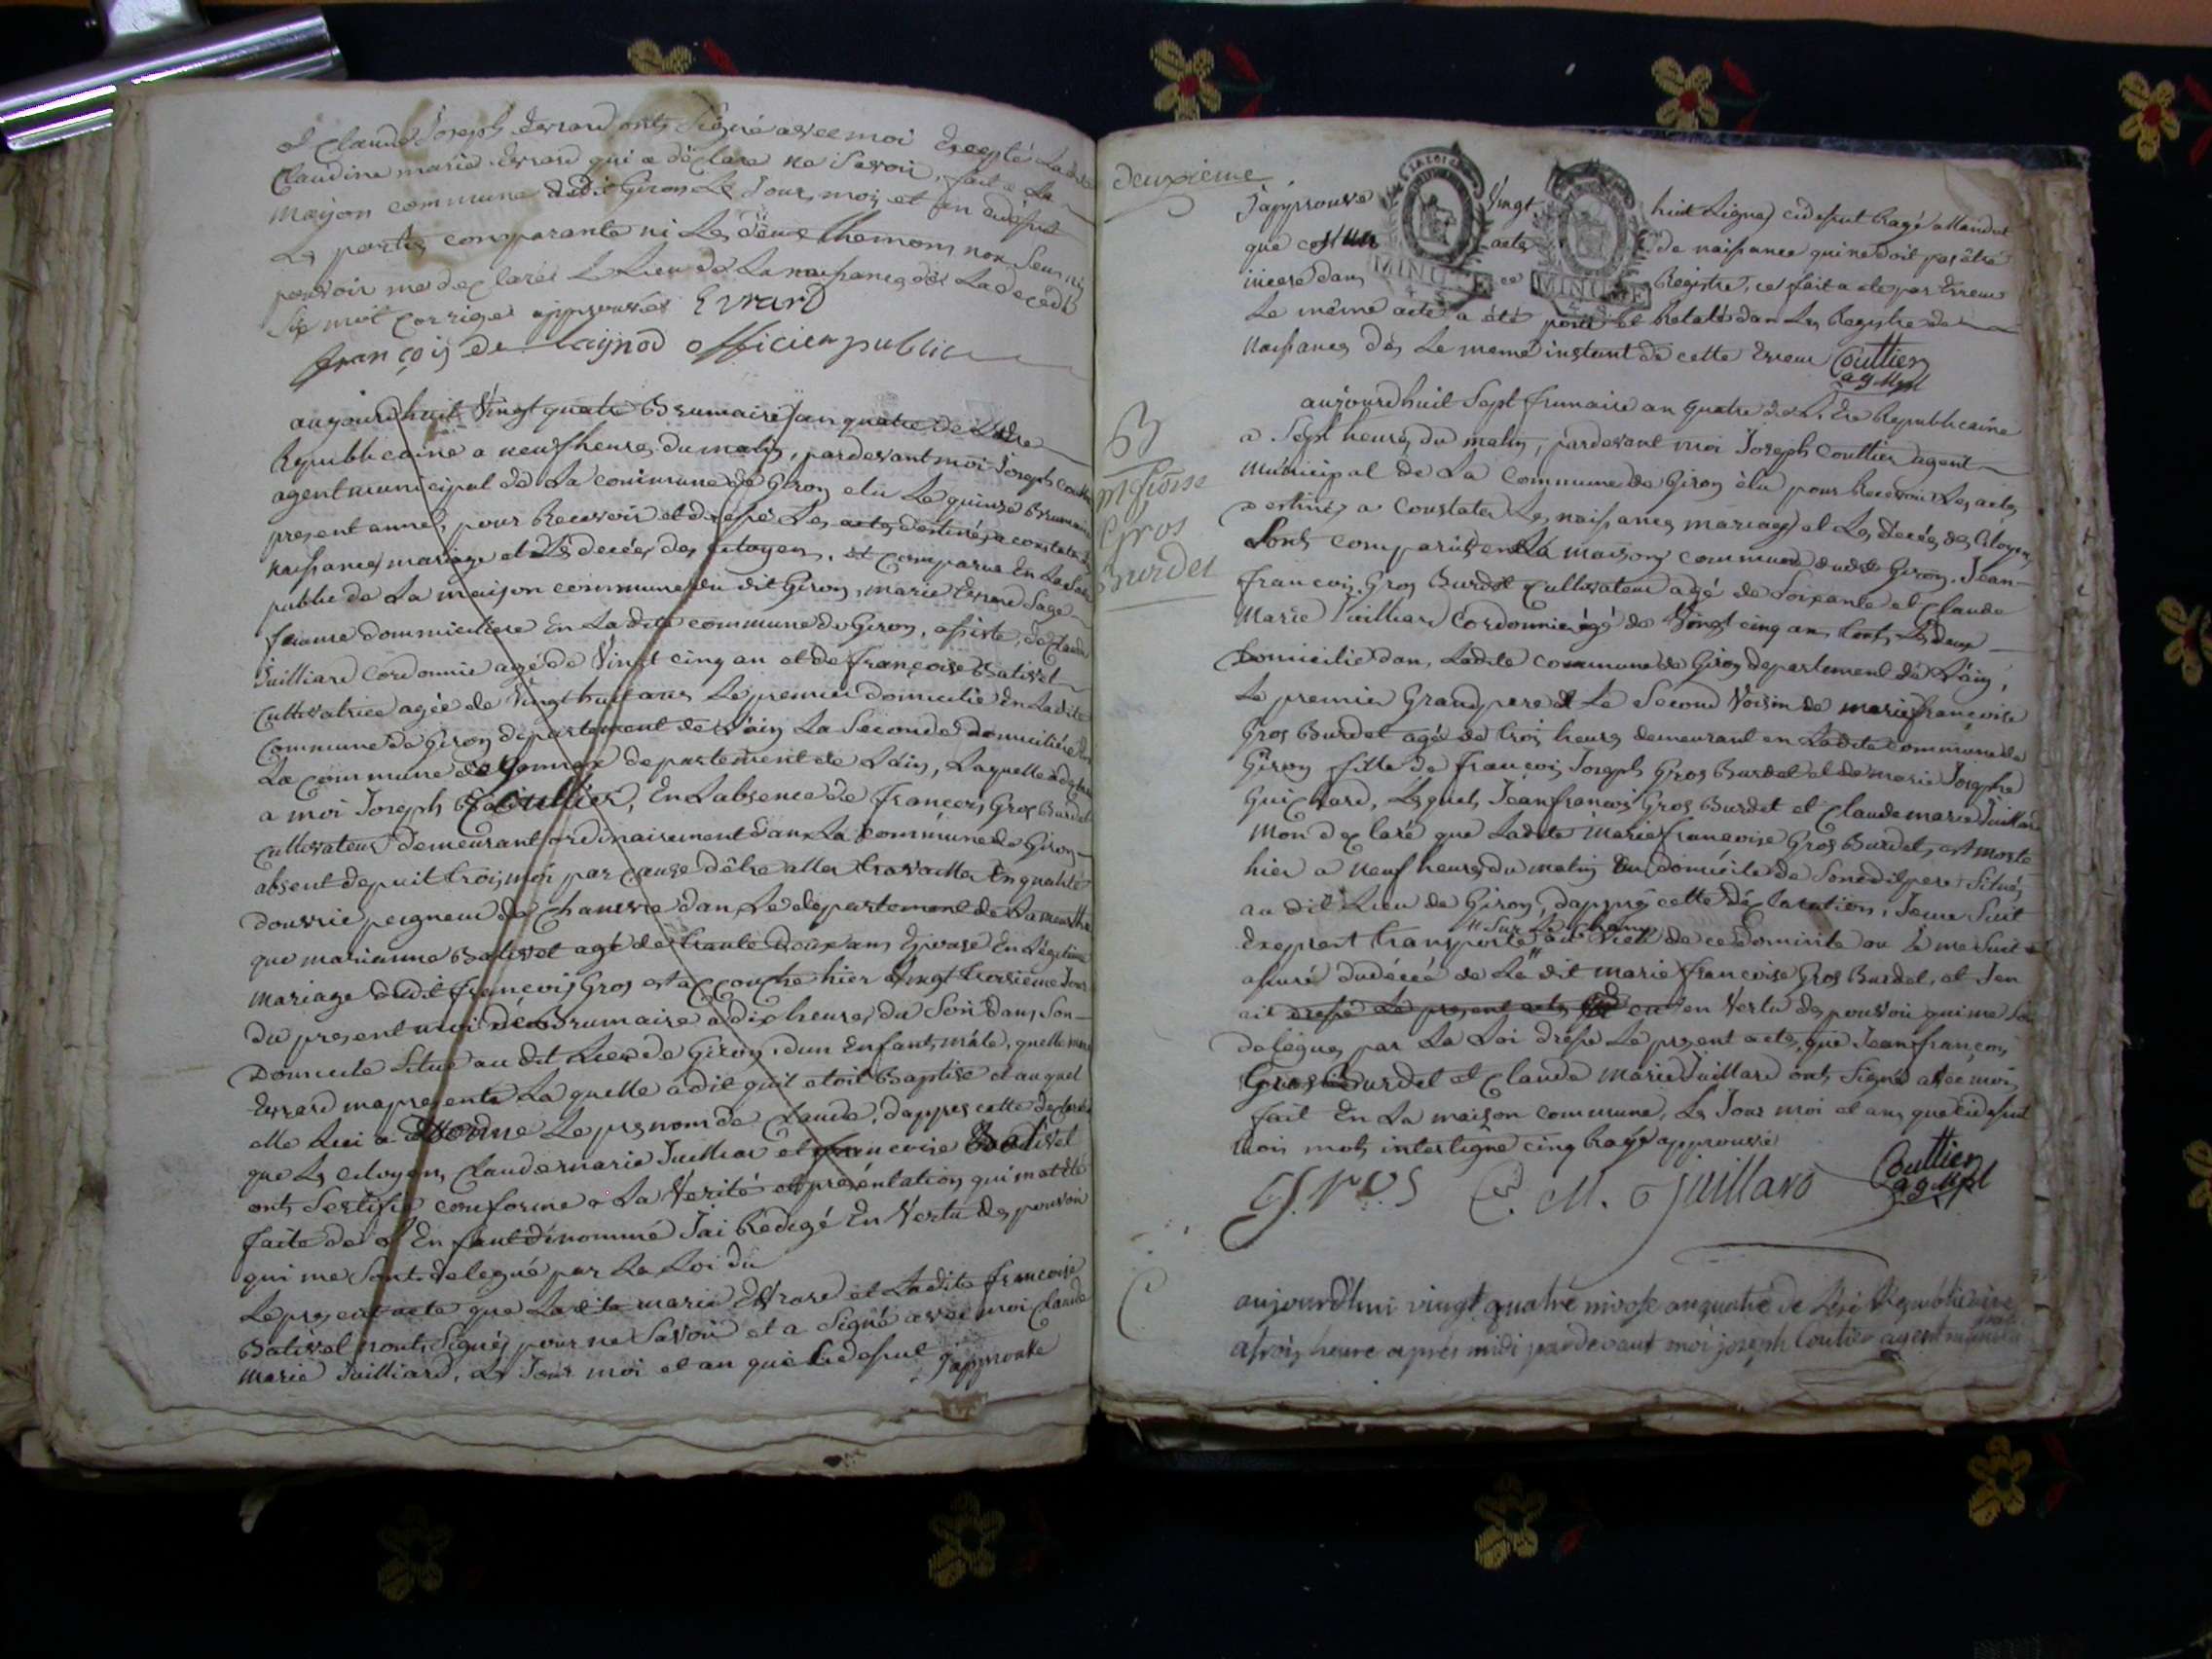 et Claude Joseph Evrard onts Signé avec moi Excepté Ladite
Claudine marie Evrard qui a déClare ne Savoir, fait a La
maison commune dudit Giron Le Jour, moi et an cidesut
Les parties comparante ni Les deux themoins non Seus ni
pouvoir me déClarés Le Lieu de La naissances de La decedé
Six mot Corriges approuvés Evrard
françois de Laynod officier public
aujourdhuit Vingt quatre Brumaire Jan quatre de L'Ere
Republicaine a neuf heures du matin, pardevant moi Joseph
agent municipal de La commune de Giron elu Le quinze Brumaire
present anné, pour Recevoir et dressé Les actes destinés a constater
naissances mariage et Les decés des Citoyens, est Comparue En La Sale
public de La maison commune du dit Giron, marie Evrard Sage
famme dommiciliere En La dite commune de Giron, assisté, de Claude
Juilliard Cordonnie agé de Vingt cinq an et de françoise Bativet
Cultivatrice agée de Vingt huit ans Le premier domicilié En Ladite
Commune de Giron département de L'ain La Seconde domiciliére
La commune de departement de L'ain, Laquelle a
a moi Joseph Couttier, En Labsence de françois Gros Burdet
Cultivateur demeurant ordinairement dans La commune de Giron
absent depuit trois moi par Cause d'être aller travailler En qualité
douvrie peigneur de Chanvre dans Le departement de La meurthe
que marianne Bativet agé de trente Deux ans Epouse En Légitime
mariage dudit françois Gros est acCouché hier Vingt troisieme Jour
du present moi de Brumaire a dix heures du Soir dans Son
Domicile Situé au dit Lieu de Giron, dun Enfant mâle, quelle marie
Evrard ma presenté La quelle a dit quil etoit Baptise et auquel
elle Lui a donné Le prenom de Claude, dappres cette
que Les citoyens Claude marie Juilliar et françoise Bativet
onts Sertifie conforme a La Verité et présentation qui mat été
faite de L'Enfant dénommé Jai Redigé En Vertu des pouvoir
qui me Sonts delegué par La Loi du
Le present acte que Ladite marie Evrard et Ladite francoise
Bativet nonts Signés pour ne Savoir et a Signé avec moi Claude
marie Juilliard, Les Jour moi et an que cidesut J'approuve
deuxieme
J'approuve Vingt huit Lignes cidesut Ragé attendut
que cest un actes de naissance qui ne doit pas être
incere dans ce Registre, ce fait a ete par Erreur
MINUTE MINUTE
Le même acte a été porté et Relaté dan Les Registre de
Naissances dés Le meme instant de cette Erreur Couttier
ag Mpl
aujourdhuit Sept frimaire an quatre de L'Ere Republicaine
a Sept heures du matin, pardevant moi Joseph Couttier agent
Municipal de La Commune de Giron élu pour Recevoir Les actes
destinés a Constater Les, naissances, mariages et Les decés des Citoyens
Sont comparut en La maison commune dudit Giron, Jean
francois Gros Burdet Cultivateur agé de Soixante et Claude
Marie Juilliard Cordonnie agé de Vingt cinq an, tout Les deux
Domicilié dan, Ladite commune de Giron departement de L'ain,
Le premier Grand pere et Le Second Voisin de marie françoise
Gros Burdet agé de trois heures demeurant en Ladite commune de
Giron fille de françois Joseph Gros Burdet et de marie Josephe
GuiChard, Lesquels Jean francois Gros Burdet et Claude marie Juillard
Mon déClaré que Ladite Marie françoise Gros Burdet, est morte
hier a Neuf heures du matin au domicile de Sondit pere Situés
au dit Lieu de Giron, dapprés cette déClaration, Jeme Suit
" Sur Le Champ
Exprest transporté au Lieu de ce Domicile ou Je me Suit
assuré dudécéé de La dit marie françoise Gros Burdet, et Jen
ait dressé Le present acte en Vertu des pouvoir qui me Son
delégues par La Loi drésse Le present acte, que Jean françois
Gros Burdet et Claude marie Juillard onts Signé avec moi
fait En La maison commune, Les Jour moi et ans que cidesut
trois mots interligne cinq Rayé approuvé
Gros C. M. Juillard Couttier
ag Mpl
B
M fçoise
Gros
Burdet
aujourd'hui vingt quatre nivose an quatre de L'ere Republicaine
a trois heure après midi pardevant moi joseph Coutier agent